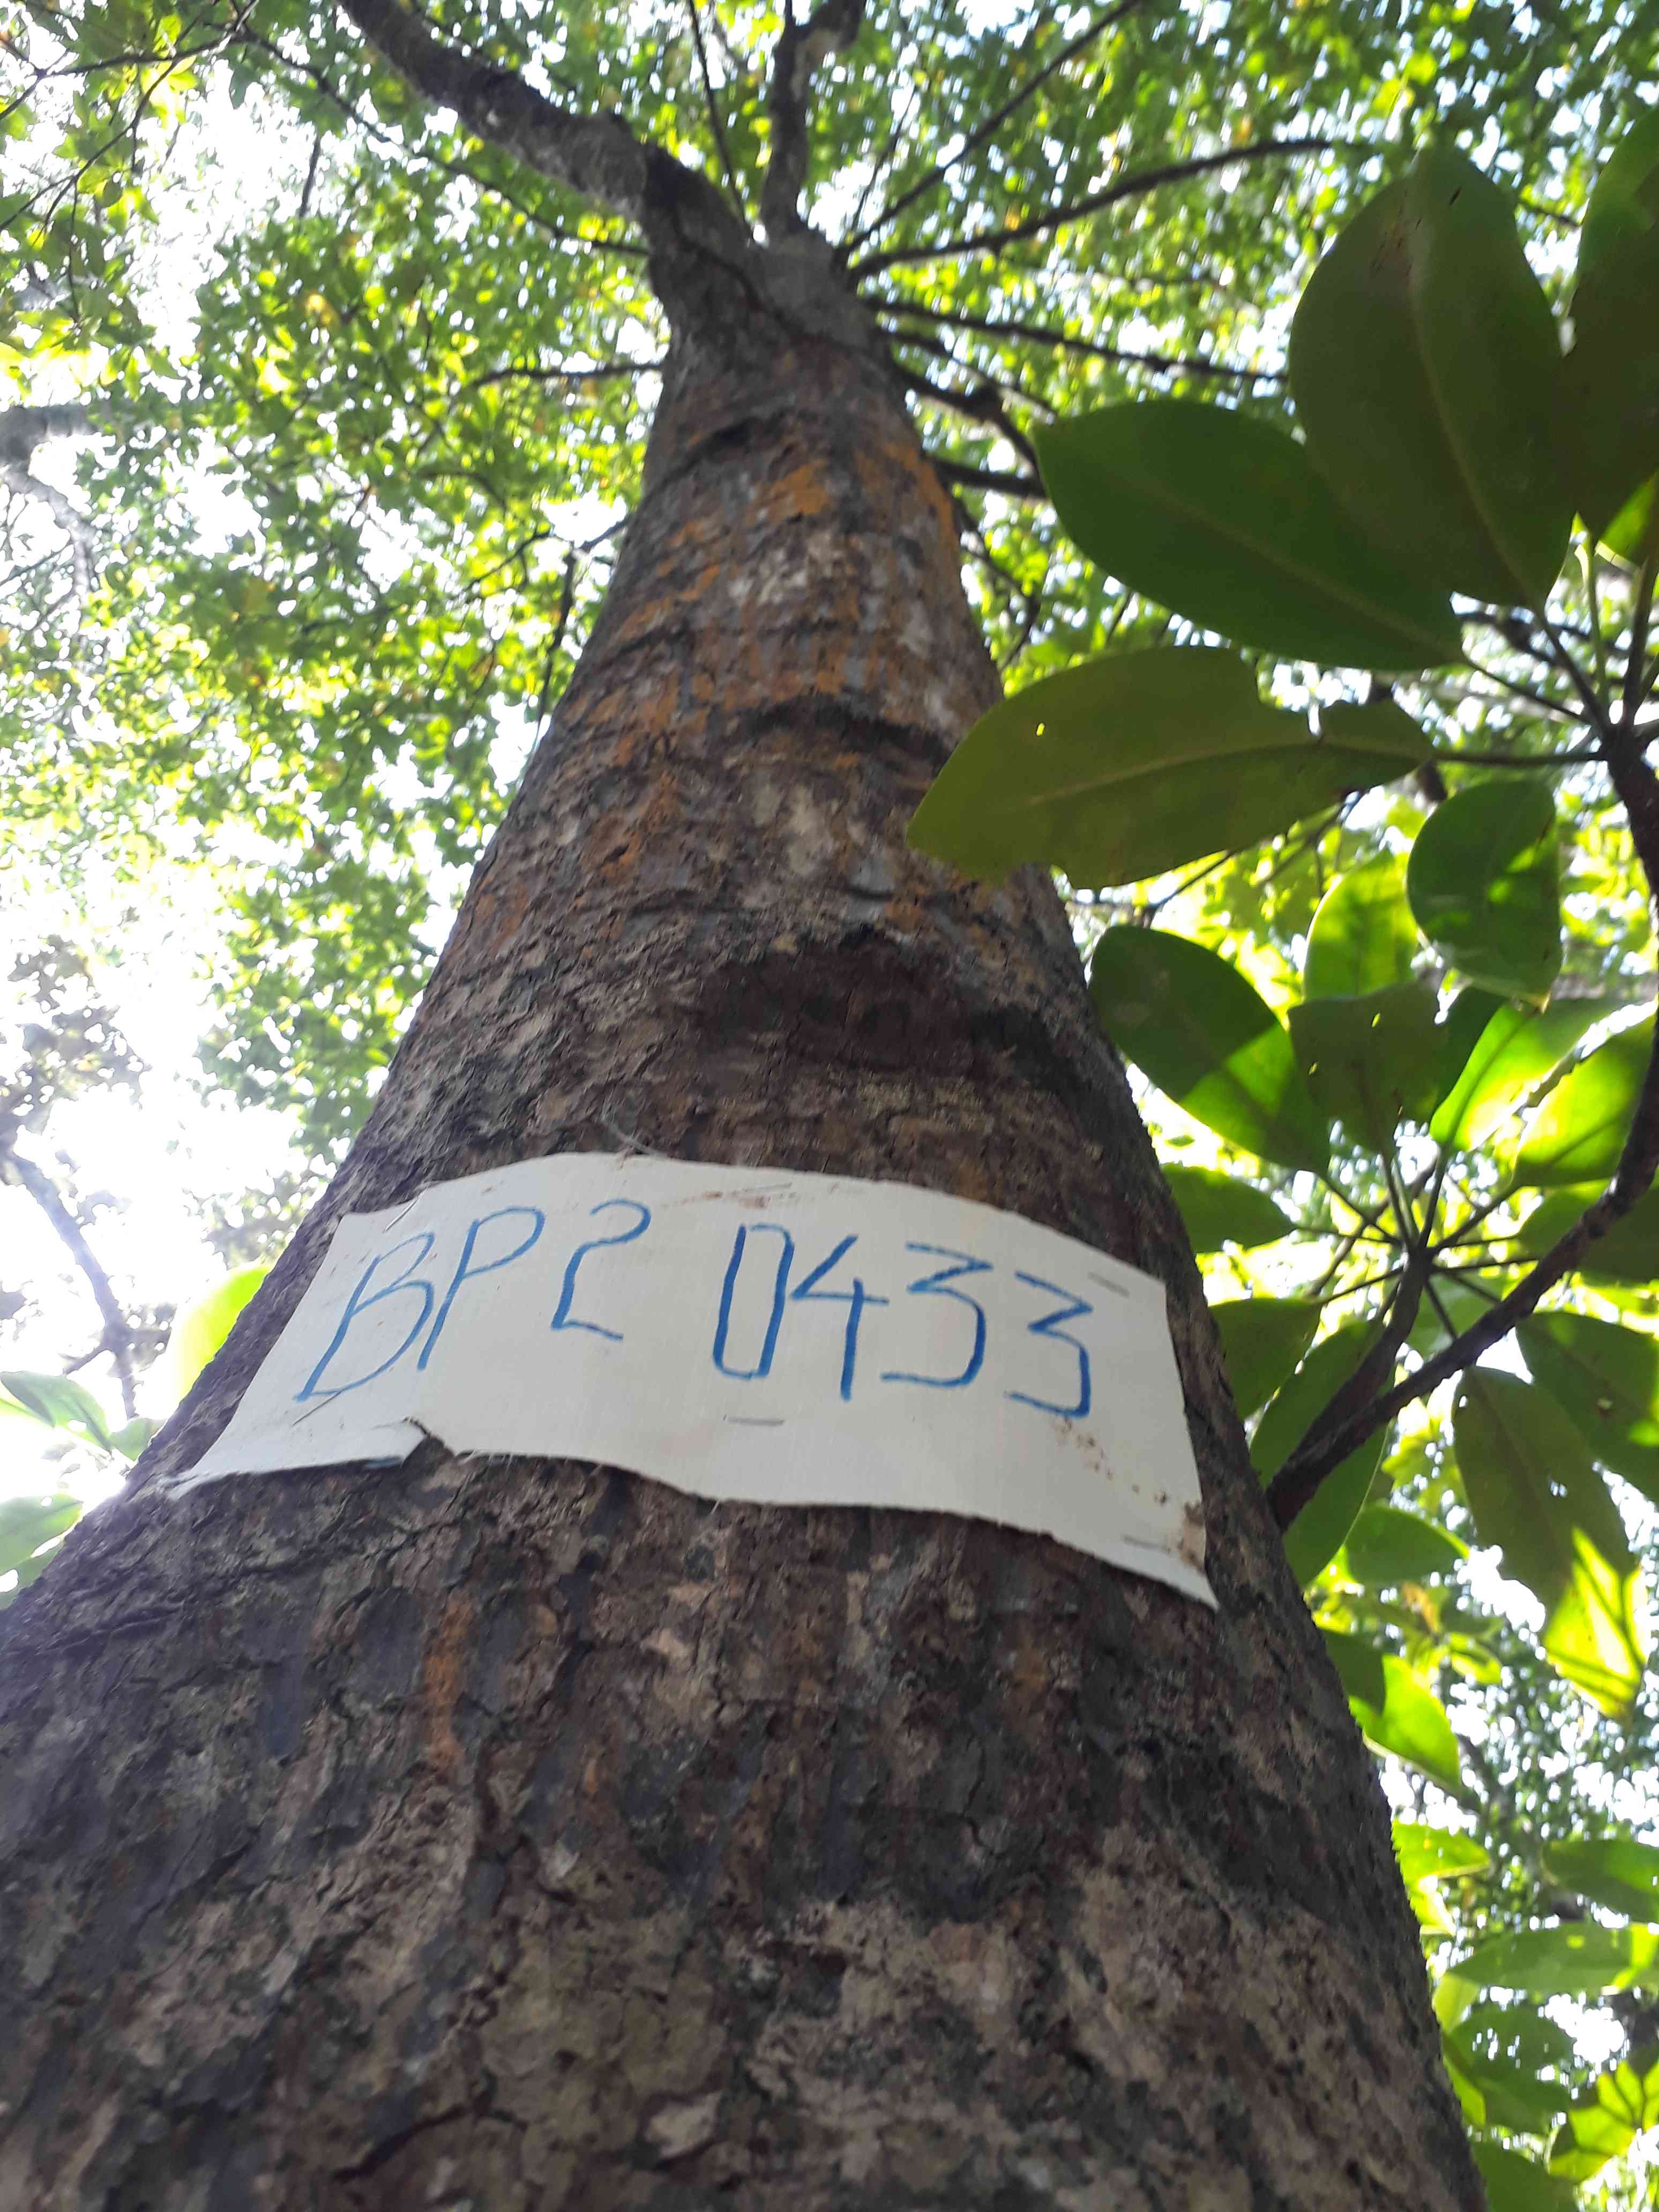 BP2 0433